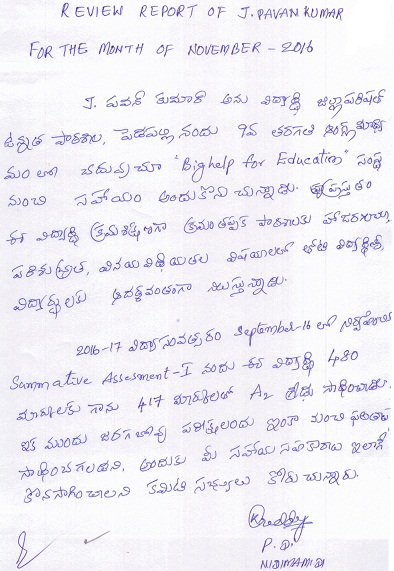 REVIEW REPORT OF J. PAVAN KUMAR
FOR THE MONTH OF NOVEMBER - 2016
J. పవన్ కుమార్ అను విద్యార్థి జిల్లాపరిషత్
ఉన్నత పాఠశాల, పెడపల్లి నందు 9వ తరగతి
లో చదువుచూ "Bighelp for Education" సంస్థ
నుంచి సహాయం అందుకొనుచున్నాడు. ప్రస్తుతం
ఈ విద్యార్థి క్రమశిక్షణగా క్రమం తప్పక పాఠశాలకు హాజరగుచూ,
పరిశుభ్రత, వినయ విధేయతల విషయాలలో తోటి విద్యార్థినీ,
విద్యార్థులకు ఆదర్శవంతంగా నిలుస్తున్నాడు.
2016-17 విద్యా సంవత్సరం September-16 లో నిర్వహించిన
Summative Assesment-I నందు ఈ విద్యార్థి 480
మార్కులకు గాను 417 మార్కులతో A2 గ్రేడు సాధించాడు.
ఇక ముందు జరగబోవు పరీక్షలందు ఇంకా మంచి ఫలితాలు
సాధించగలడని, అందుకు మీ సహాయ సహకారాలు ఇలాగే
కొనసాగించాలని కమిటి సభ్యులు కోరుచున్నారు.
P. D.
NIDIMAMIDI